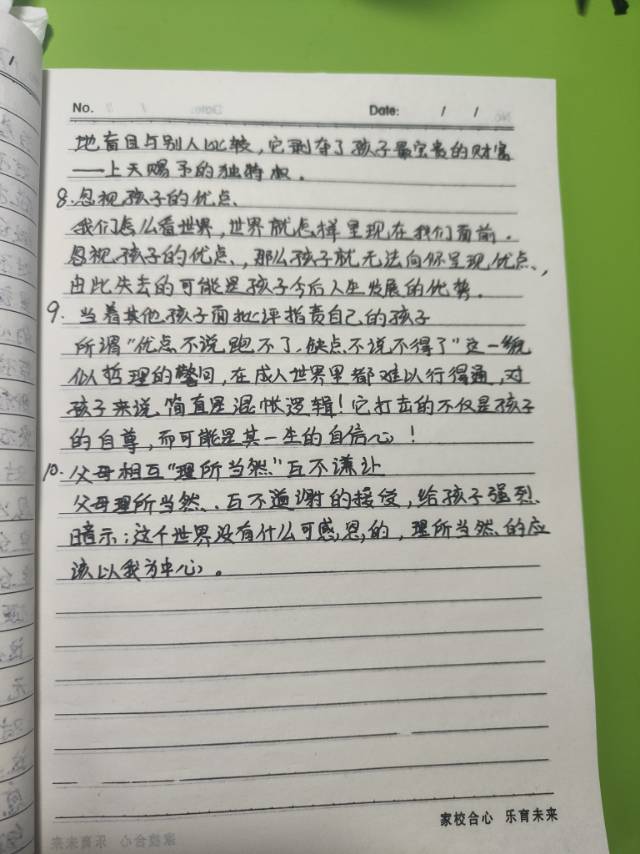 No.
Date: / /
地盲目与别人比较，它剥夺了孩子最宝贵的财富
——上天赐予的独特权。
8.忽视孩子的优点、
我们怎么看世界，世界就怎样呈现在我们面前。
忽视孩子的优点、，那么孩子就无法向你呈现优点、，
由此失去的可能是孩子今后人生发展的优势。
9. 当着其他孩子面批评指责自己的孩子
所谓“优点不说跑不了，缺点不说不得了”这一貌
似哲理的 间，在成人世界里都难以行得通，对
孩子来说简直是混帐逻辑！它打击的不仅是孩子
的自尊，而可能是其一生的自信心！
10. 父母相互“理所当然”互不谦让
父母理所当然、互不道谢的接受，给孩子强烈
暗示：这个世界没有什么可感恩的，理所当然的应
该以我为中心。
家校合心 乐育未来